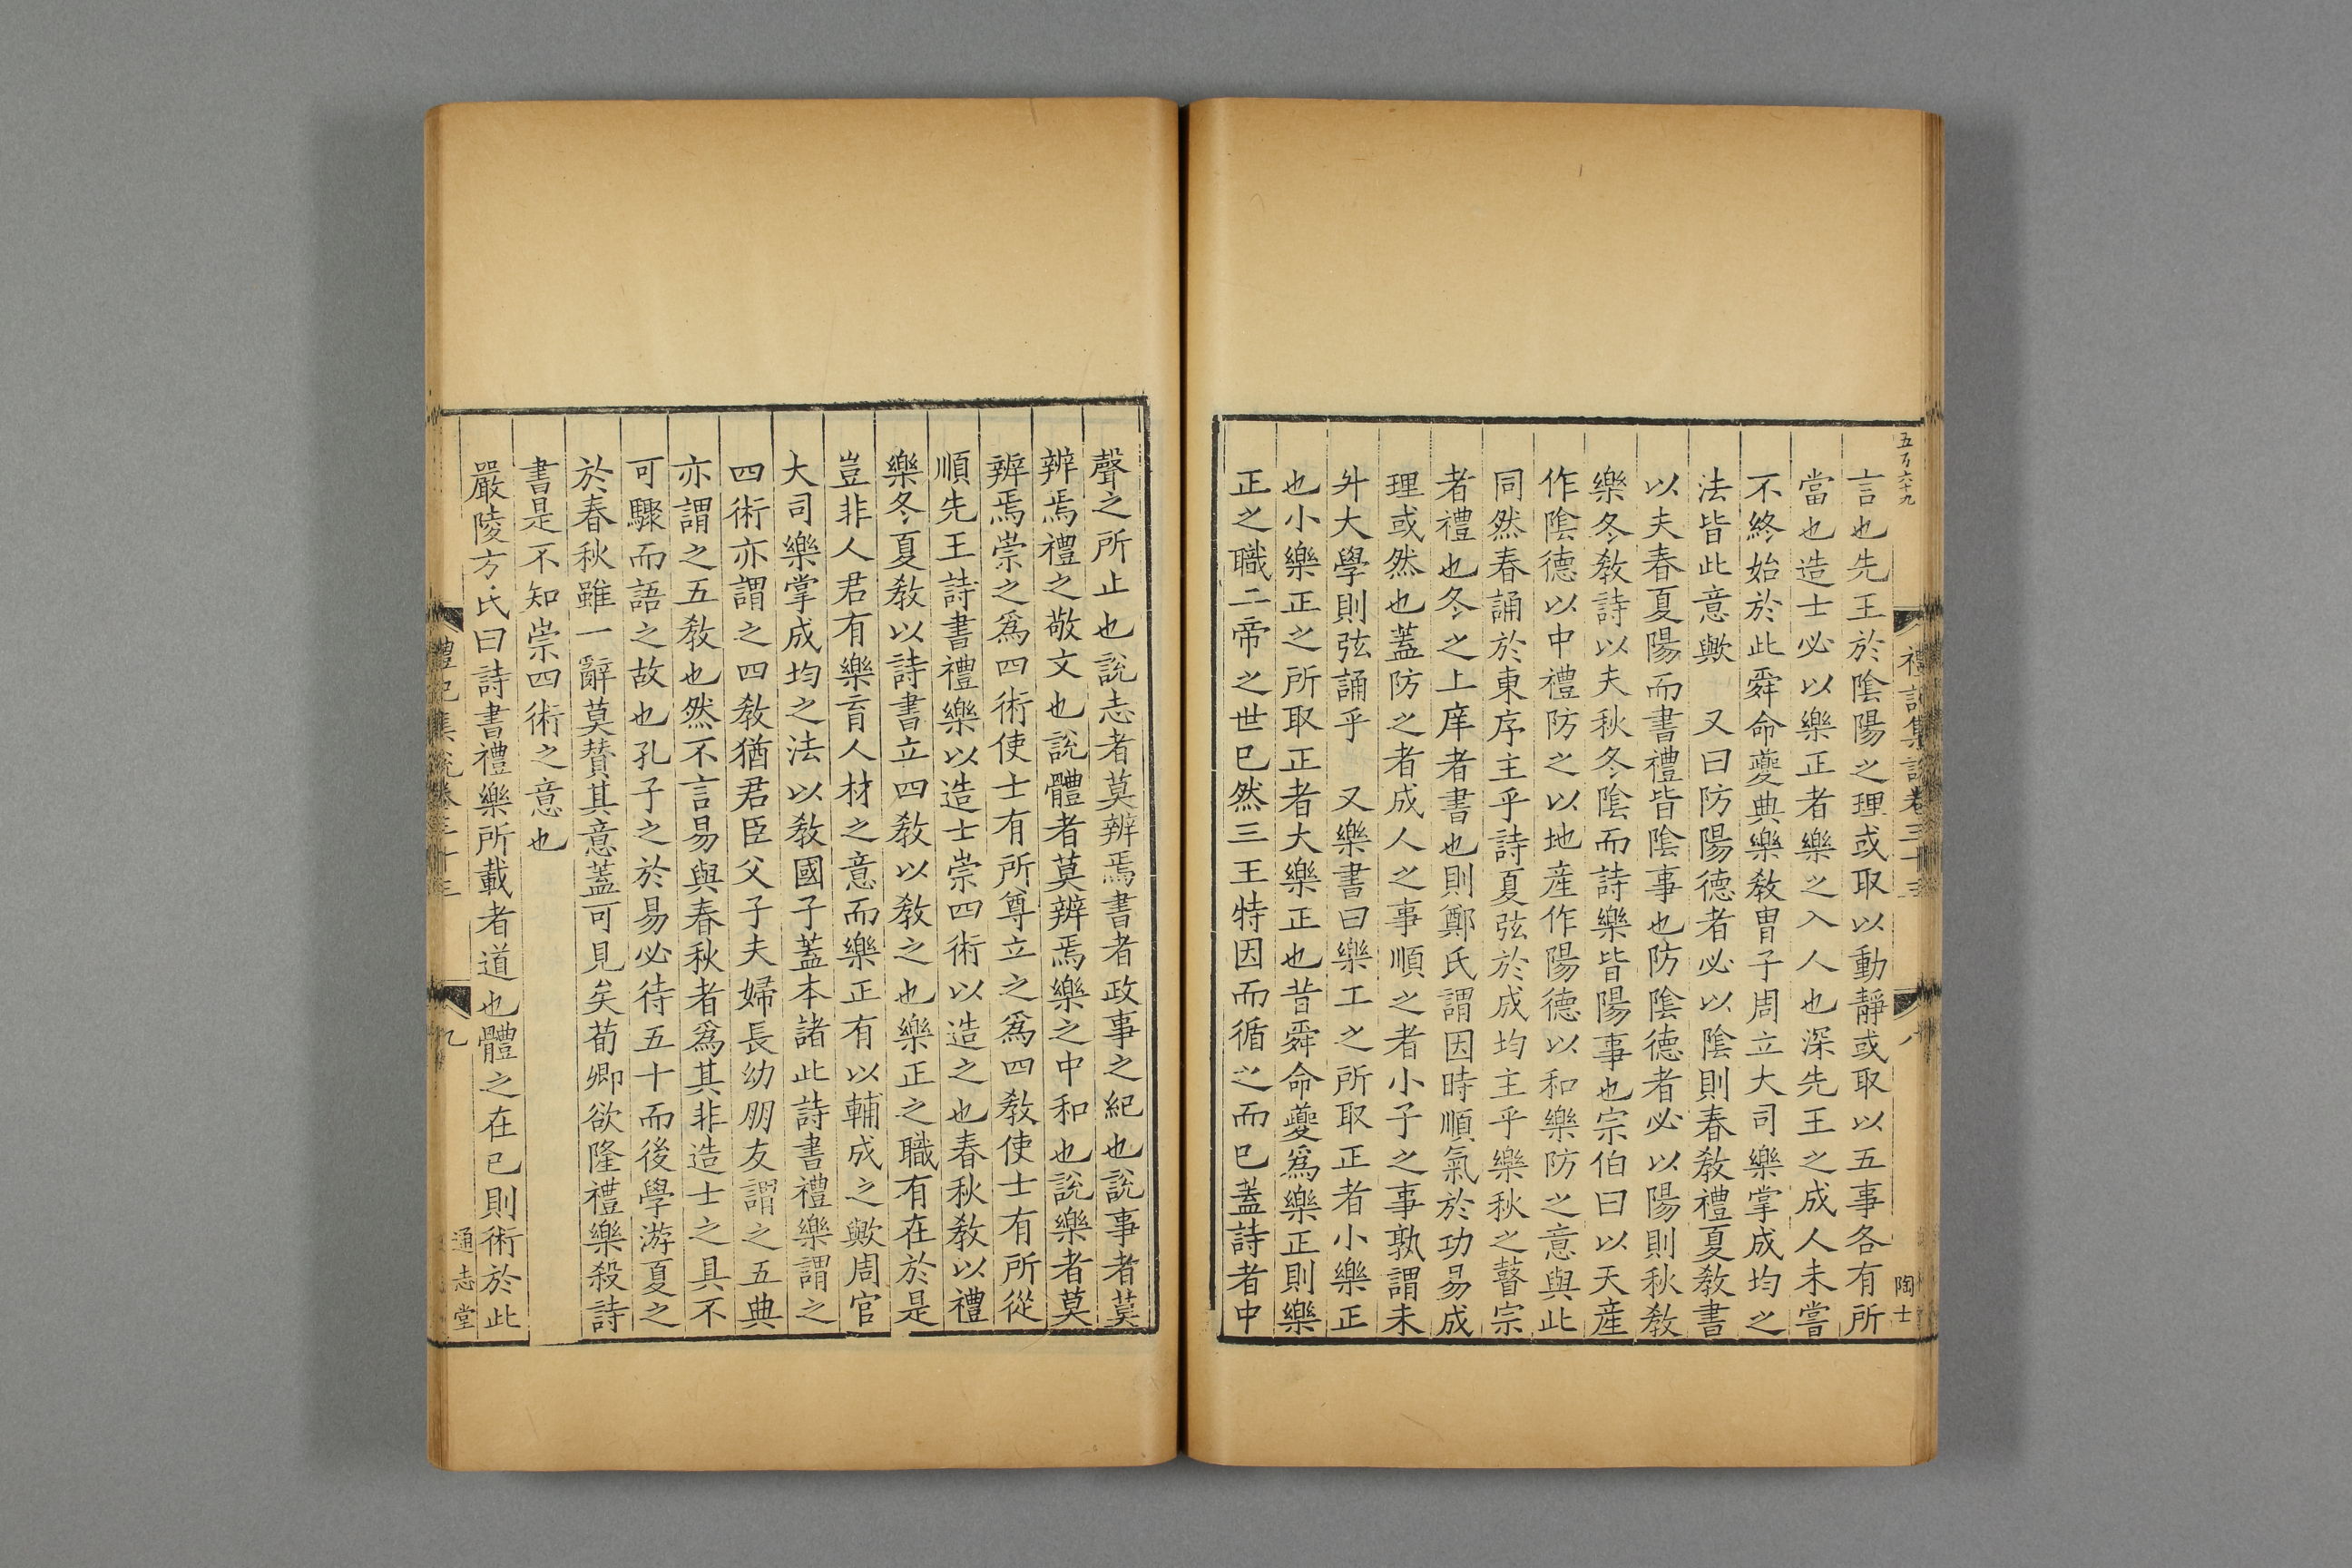 五万六十九
禮記集說卷三十三
八
陶士
言也先王於陰陽之理或取以動靜或取以五事各有所
當也造士必以樂正者樂之入人也深先王之成人未嘗
不終始於此舜命夔典樂敎胄子周立大司樂掌成均之
法皆此意歟　又曰防陽德者必以陰則春敎禮夏敎書
以夫春夏陽而書禮皆陰事也防陰德者必以陽則秋敎
樂冬敎詩以夫秋冬陰而詩樂皆陽事也宗伯曰以天產
作陰德以中禮防之以地產作陽德以和樂防之意與此
同然春誦於東序主乎詩夏弦於成均主乎樂秋之瞽宗
者禮也冬之上庠者書也則鄭氏謂因時順氣於功易成
理或然也蓋防之者成人之事順之者小子之事孰謂未
升大學則弦誦乎　又樂書曰樂工之所取正者小樂正
也小樂正之所取正者大樂正也昔舜命夔爲樂正則樂
正之職二帝之世已然三王特因而循之而已蓋詩者中
聲之所止也說志者莫辨焉書者政事之紀也說事者莫
辨焉禮之敬文也說體者莫辨焉樂之中和也說樂者莫
辨焉崇之爲四術使士有所尊立之爲四敎使士有所從
順先王詩書禮樂以造士崇四術以造之也春秋敎以禮
樂冬夏敎以詩書立四敎以敎之也樂正之職有在於是
豈非人君有樂育人材之意而樂正有以輔成之歟周官
大司樂掌成均之法以敎國子蓋本諸此詩書禮樂謂之
四術亦謂之四敎猶君臣父子夫婦長幼朋友謂之五典
亦謂之五敎也然不言易與春秋者爲其非造士之具不
可驟而語之故也孔子之於易必待五十而後學游夏之
於春秋雖一辭莫贊其意蓋可見矣荀卿欲隆禮樂殺詩
書是不知崇四術之意也
嚴陵方氏曰詩書禮樂所載者道也體之在已則術於此
禮記集說卷三十三
九
通志堂